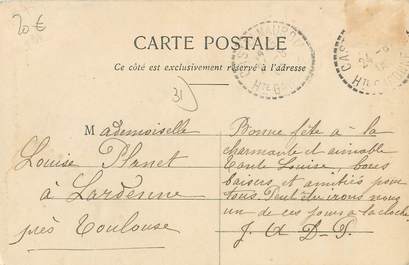 20 €
CARTE POSTALE
Ce côté est exclusivement réservé à l'adresse
CASTELMAUROU
Hte GAR
CAST
24 - 8
Hte GARONNE
31
Mademoiselle
Louise
à Lardenne
près Toulouse
Bonne fête à la
charmante et aimable
tante Louise bons
baisers et amitiés pour
tous. Peut être irons nous
un de ces jours à la
J. A D. P.